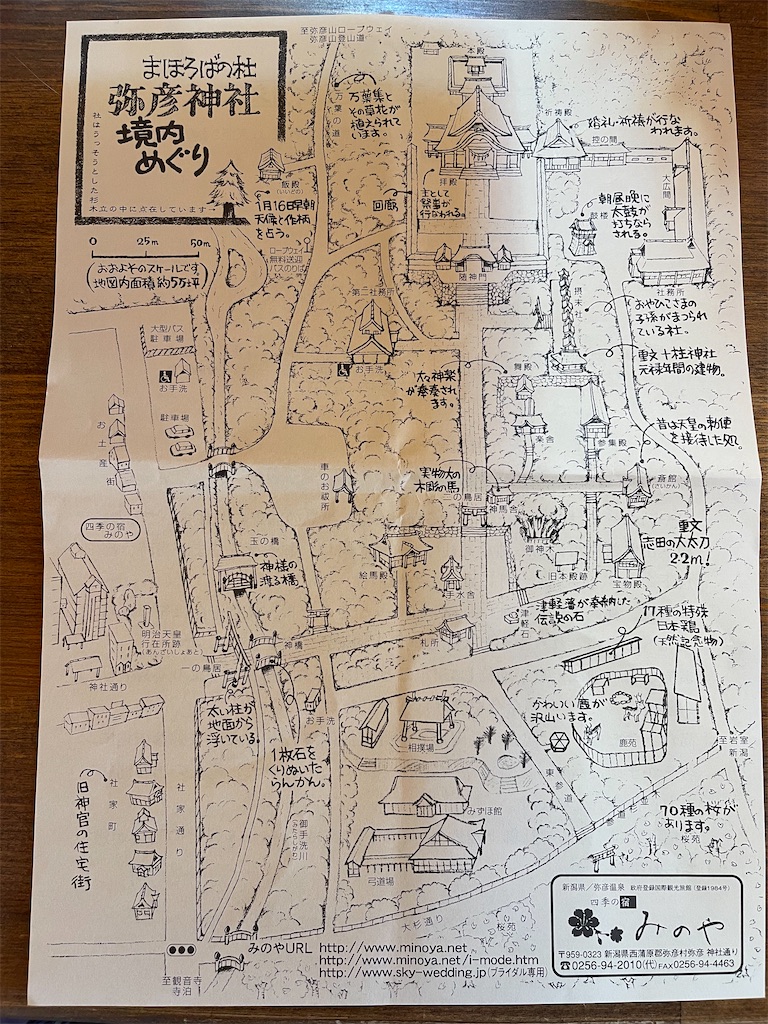 至弥彦山ロープウェイ
弥彦山登山道
まほろばの杜
弥彦神社
境内
めぐり
社はうっそうとした杉
木立の中に点在しています
0 25m 50m
おおよそのスケールです
地図内面積約5万坪
本殿
万葉集と
その草花が
植えられて
います。
万葉の道
祈祷殿
婚礼・祈祷が行な
われます。
控の間
大広間
飯殿
(いいどの)
1月16日早朝
天候と作柄
を占う。
回廊
拝殿
主として
祭事が
行なわれる。
朝昼晩に
太鼓が
打ちなら
される。
鼓楼
ロープウェイ
無料送迎
バスのりば
第二社務所
随神門
社務所
摂末社
おやひこさまの
子孫がまつられ
ている社。
大型バス
駐車場
お手洗
お手洗
重文 十柱神社
元禄年間の建物。
舞殿
大々神楽
が奉奏され
ます。
駐車場
お土産街
楽舎
参集殿
昔は天皇の勅使
を接待した処。
車のお祓所
実物大の
木彫の馬
二の鳥居
神馬舎
斎館
(さいかん)
四季の宿
みのや
玉の橋
神様の
渡る橋
御神木
重文
志田の大太刀
2.2m!
絵馬殿
手水舎
旧本殿跡
宝物殿
津軽藩が奉納した
伝説の石
津軽石
17種の特殊
日本鶏
(天然記念物)
明治天皇
行在所跡
(あんざいしょあと)
一の鳥居
神橋
札所
神社通り
太い柱が
地面から
浮いている。
お手洗
かわいい鹿が
沢山います。
相撲場
鹿苑
至岩室
新潟
1枚石を
くりぬいた
らんかん。
東参道
社家町
社家通り
旧神官の住宅街
御手洗川
みずほ館
弓道場
70種の桜が
あります。
桜苑
大杉通り
桜苑
新潟県/弥彦温泉 政府登録国際観光旅館(登録1984号)
四季の宿
みのや
〒959-0323 新潟県西蒲原郡弥彦村弥彦 神社通り
☎0256-94-2010(代)FAX0256-94-4463
みのやURL http://www.minoya.net
http://www.minoya.net/i-mode.htm
http://www.sky-wedding.jp(ブライダル専用)
至観音寺
寺泊